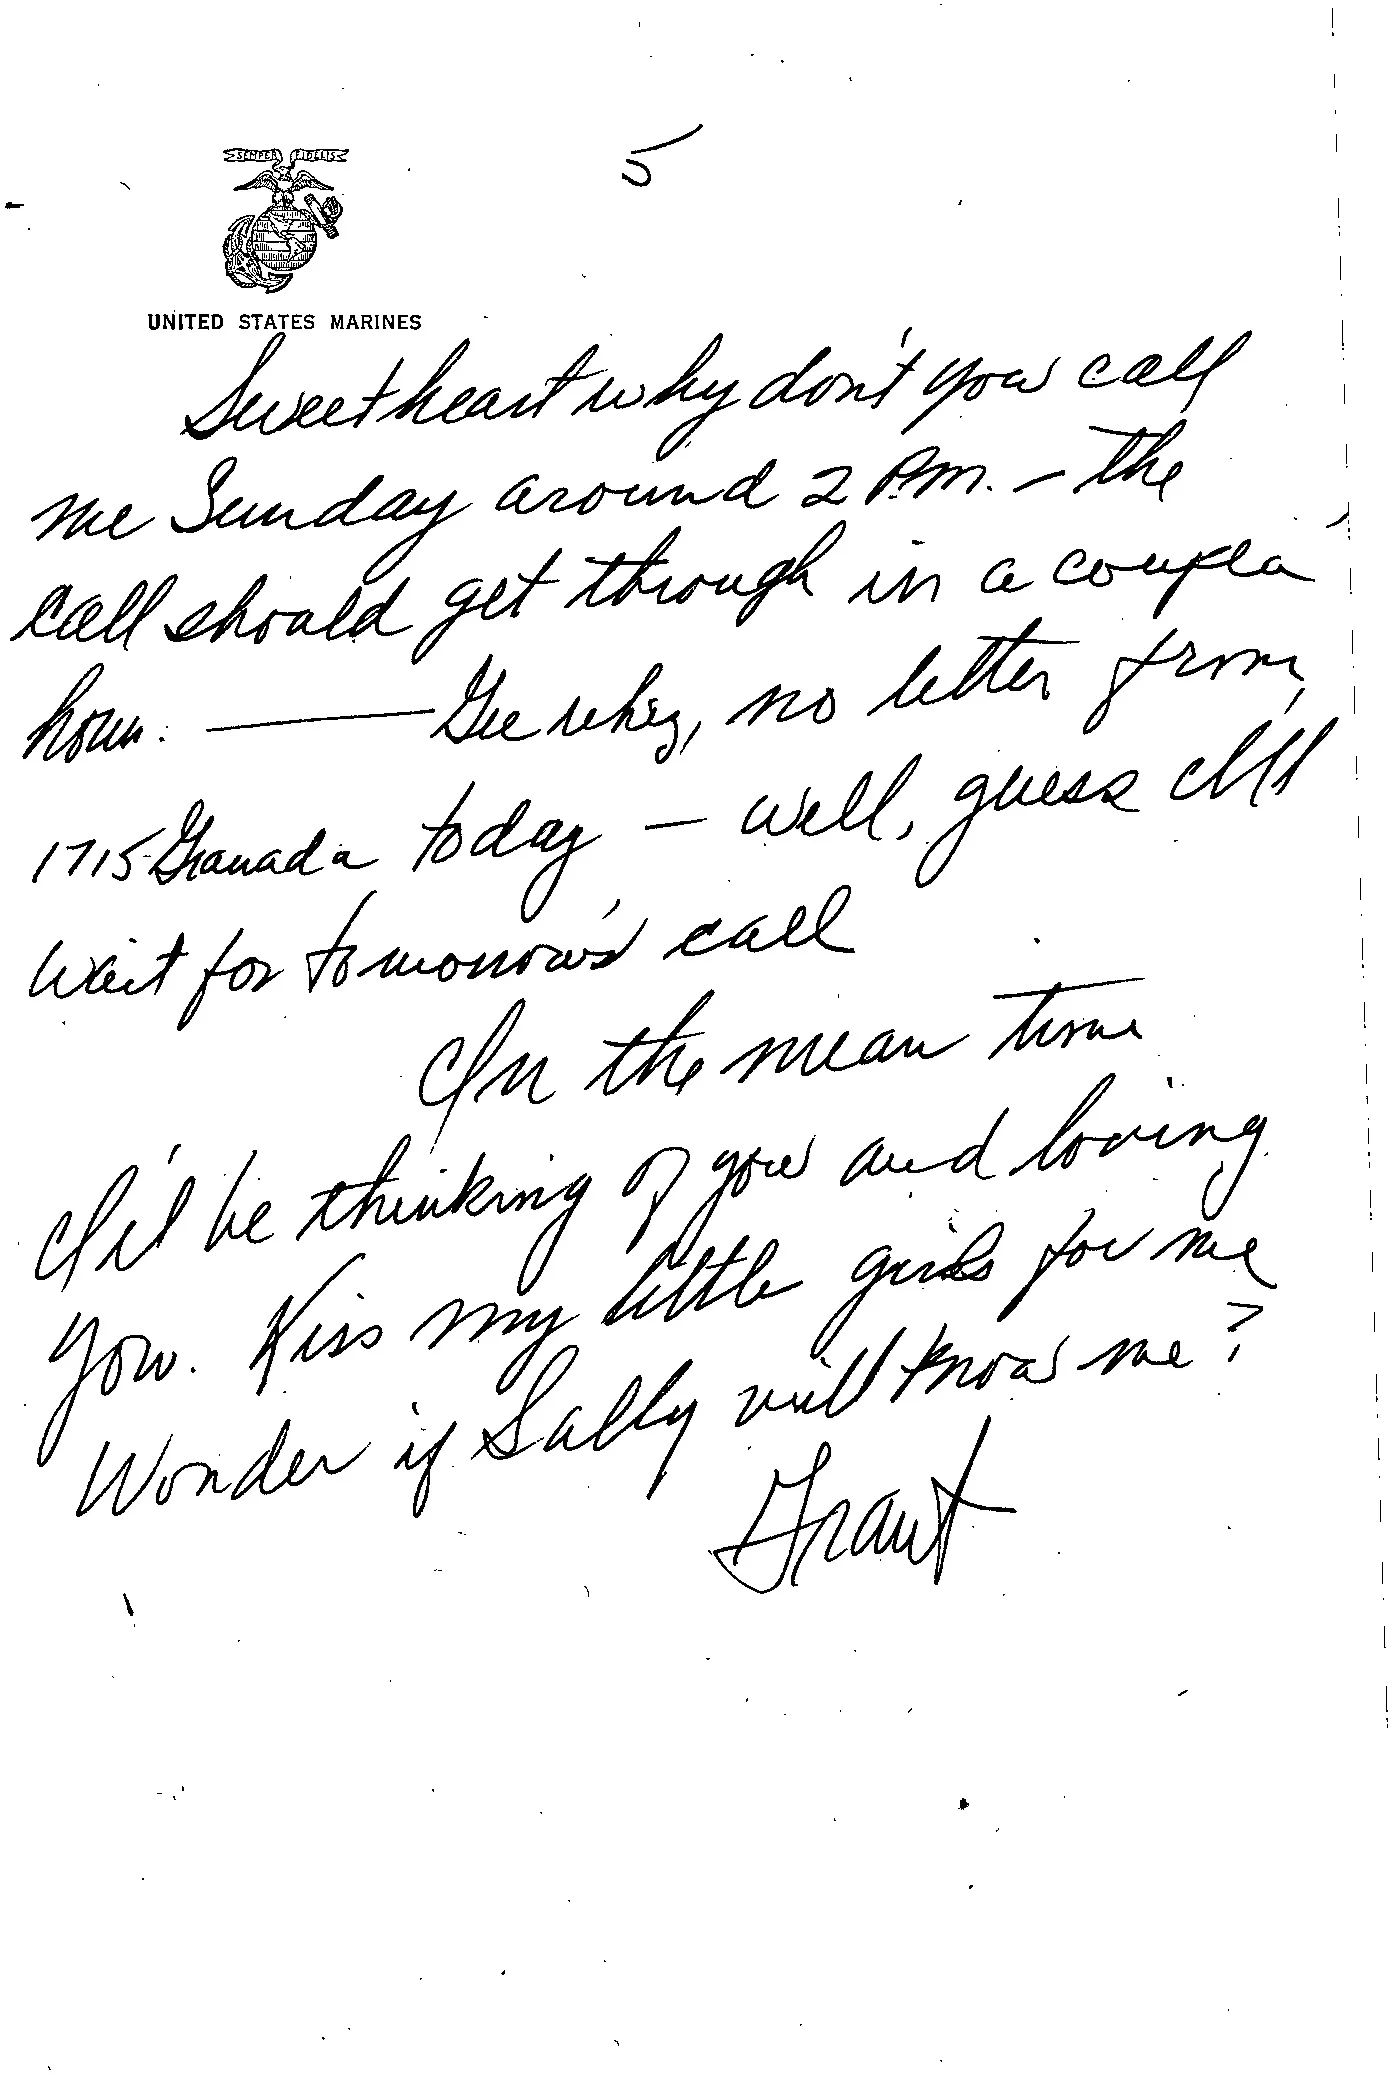 5
SEMPER FIDELIS
UNITED STATES MARINES
Sweetheart why don't you call
me Sunday around 2 P.M. — the
call should get through in a coupla
hour. — Gee whiz, no letter from
1715 Granada today — well, guess I'll
wait for tomorrow's call
In the mean time
I'll be thinking of you and loving
you. Kiss my little girls for me
Wonder if Sally will know me?
Grant